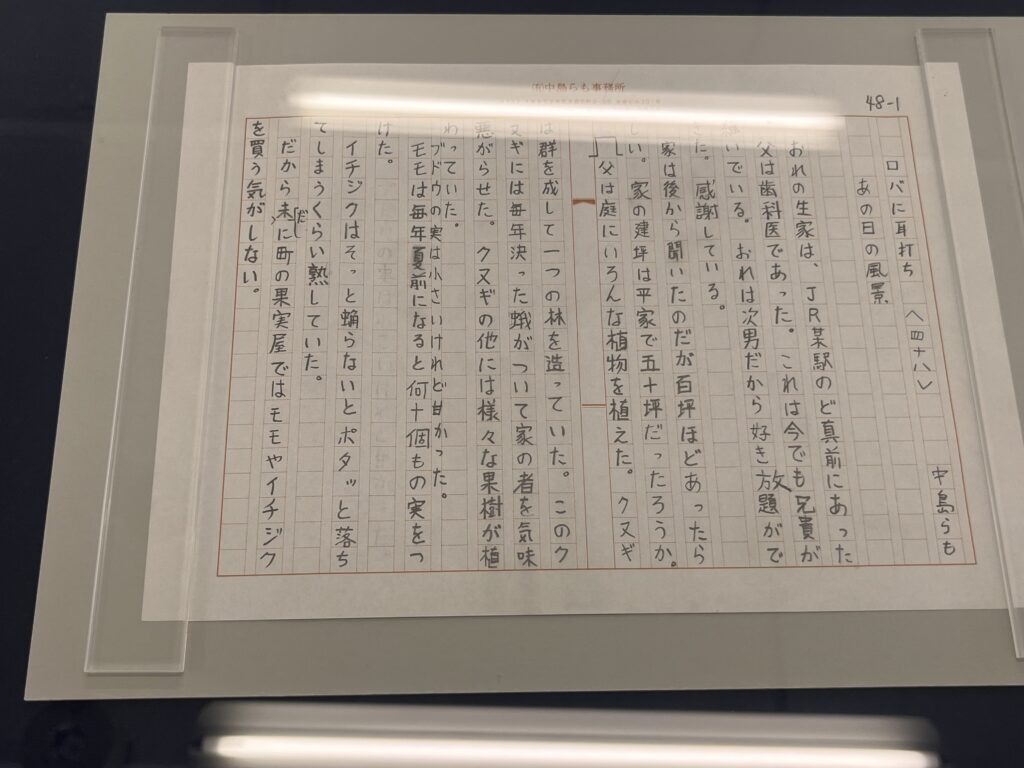 ㈲中島らも事務所
48-1
ロバに耳打ち 〈四十八〉
中島らも
あの日の風景
おれの生家は、JR某駅のど真前にあった
父は歯科医であった。これは今でも兄貴が
いでいる。おれは次男だから好き放題がで
きた。感謝している。
家は後から聞いたのだが百坪ほどあったら
しい。家の建坪は平家で五十坪だったろうか。
父は庭にいろんな植物を植えた。クヌギ
は群を成して一つの林を造っていた。このク
ヌギには毎年決った蛾がついて家の者を気味
悪がらせた。クヌギの他には様々な果樹が植
わっていた。
ブドウの実は小さいけれど甘かった。
モモは毎年夏前になると何十個もの実をつ
けた。
イチジクはそっと触らないとポタッと落ち
てしまうくらい熟していた。
だから未だに町の果実屋ではモモやイチジク
を買う気がしない。